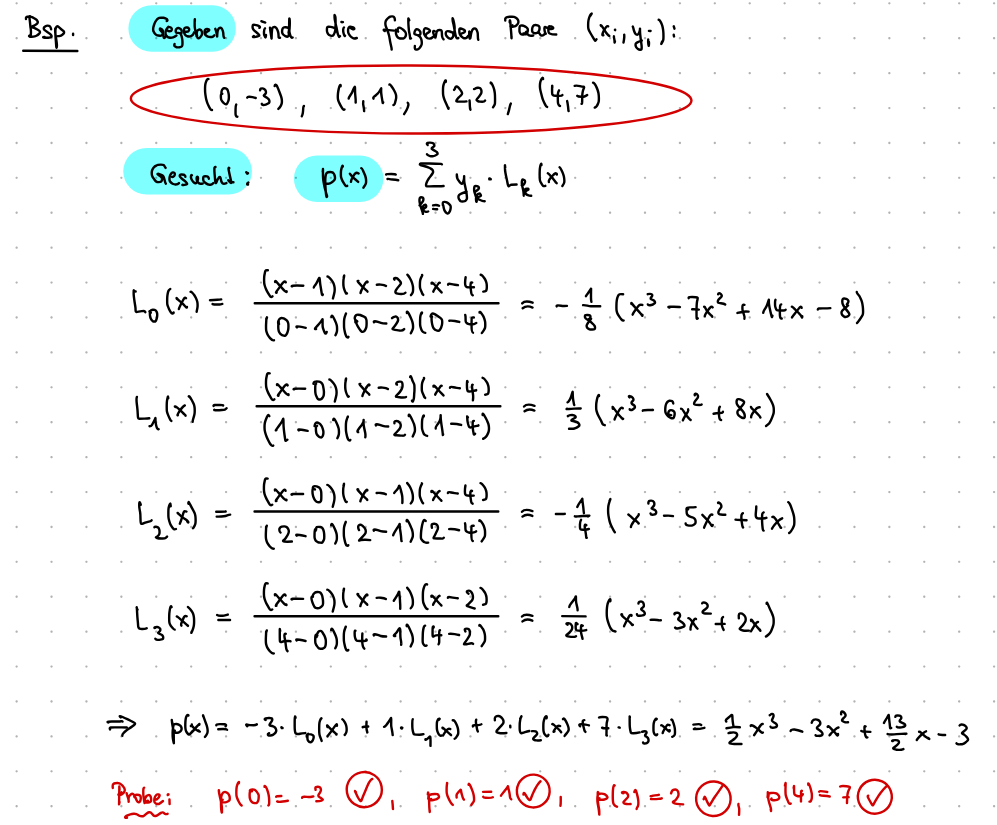 Bsp. Gegeben sind die folgenden Paare (xᵢ, yᵢ):
(0,-3), (1,1), (2,2), (4,7)
Gesucht: p(x) = ∑_{k=0}^{3} y_k · L_k(x)
L₀(x) = (x-1)(x-2)(x-4) / (0-1)(0-2)(0-4) = - 1/8 (x³ - 7x² + 14x - 8)
L₁(x) = (x-0)(x-2)(x-4) / (1-0)(1-2)(1-4) = 1/3 (x³ - 6x² + 8x)
L₂(x) = (x-0)(x-1)(x-4) / (2-0)(2-1)(2-4) = - 1/4 (x³ - 5x² + 4x)
L₃(x) = (x-0)(x-1)(x-2) / (4-0)(4-1)(4-2) = 1/24 (x³ - 3x² + 2x)
⇒ p(x) = -3·L₀(x) + 1·L₁(x) + 2·L₂(x) + 7·L₃(x) = 1/2 x³ - 3x² + 13/2 x - 3
Probe: p(0) = -3 ✓, p(1) = 1 ✓, p(2) = 2 ✓, p(4) = 7 ✓